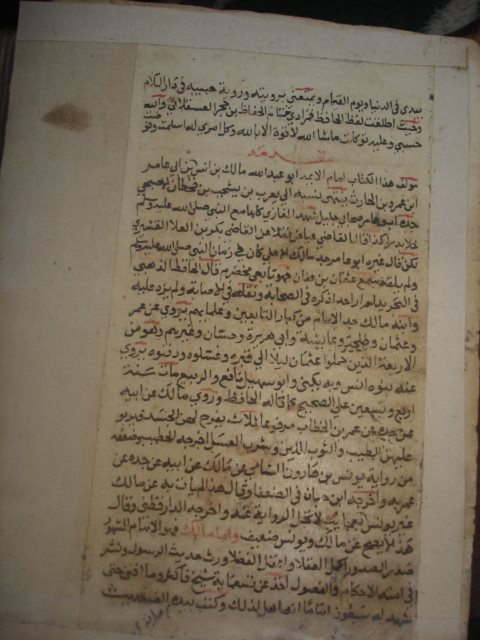 سيدي في الدنيا ويوم القيام ويمتعني برؤيته ورؤية حبيبه في دار السلام
وحيث اطلقت لفظ الحافظ فمرادي خاتمة الحفاظ بن حجر العسقلاني والله
حسبي وعليه توكلت ماشا الله لا قوة الا بالله وكل امري له اسلمت وفوضت
مقدمة
مؤلف هذا الكتاب امام الايمة ابو عبد الله مالك بن انس بن ابي عامر
ابن عمرو بن الحارث ينتهي نسبه الى يعرب بن يشجب بن قحطان الاصبحي
جده ابو عامر صحابي جليل شهد المغازي كلها مع النبي صلى الله عليه وسلم
خلا بدرا كذا قال القاضي عياض نقلا عن القاضي بكر بن العلا القشيري
لكن قال غيره ابو عامر جد مالك الاعلى كان في زمان النبي صلى الله عليه وسلم
ولم يلقه سمع عثمان بن عفان فهو تابعي مخضرم قال الحافظ الذهبي
في التجريد لم ار احدا ذكره في الصحابة ونقله في الاصابة ولم يزد عليه
وابنه مالك جد الامام من كبار التابعين وعلمايهم يروي عن عمر
وعثمان وطلحة وعايشة وابي هريرة وحسان وغيرهم وهو من
الاربعة الذين حملوا عثمان ليلا الى قبره وغسلوه ودفنوه يروي
عنه بنوه انس وبه يكنى وابو سهيل نافع والربيع مات سنة
اربع وسبعين على الصحيح كما قاله الحافظ وروى مالك عن ابيه
عن جده عن عمر بن الخطاب مرفوعا ثلاث يفرح لهن الجسد فيربو
عليهن الطيب والثوب اللين وشرب العسل اخرجه الخطيب وضعفه
من رواية يونس بن هارون الشامي عن مالك عن ابيه عن جده عن
عمر به واخرجه ابن حبان في الضعفا وقال هذا لم يات به عن مالك
غير يونس لا تحل الرواية عنه واخرجه الدارقطني وقال
هذا لا يصح عن مالك ويونس ضعيف واما مالك فهو الامام المشهور
صدر الصدور اكمل العقلا واعقل الفضلا ورث حديث الرسول ونشر
في امته الاحكام والفصول اخذ عن تسعماية شيخ فاكثر وما افتى حتى
شهد له سبعون اماما انه اهل لذلك وكتب بيده الف حديث